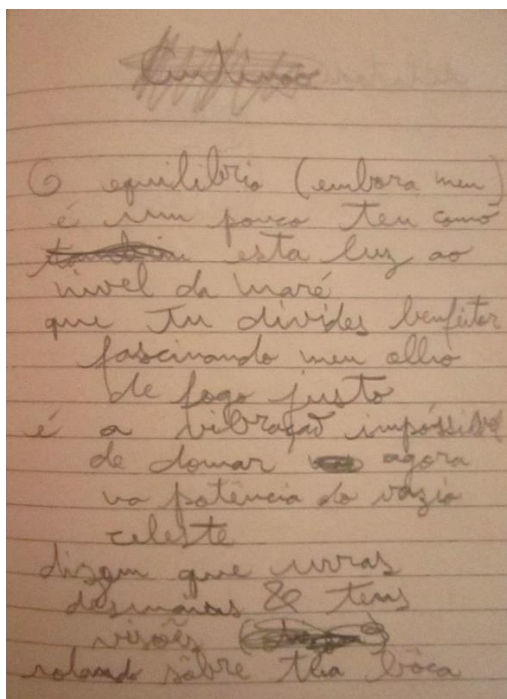 O equilíbrio (embora meu)
é um pouco teu como
esta luz ao
nível da maré
que Tu divides benfeitor
fascinando meu olho
de fogo justo
é a vibração impossível
de domar agora
na potência do vazio
celeste
dizem que urras
desmaias & tens
visões
rolando sôbre tua bôca